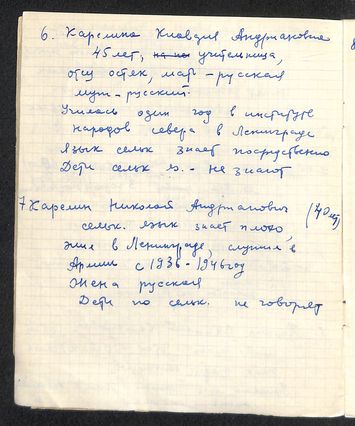 6. Карелина Клавдия Андриановна
45 лет, учительница,
отец остяк, мать - русская
муж - русский.
Училась один год в институте
народов севера в Ленинграде
Язык сельк знает посредственно
Дети сельк яз. - не знают
7. Карелин Николай Андрианович (40 лет)
сельк. язык знает плохо,
жил в Ленинграде, служил в
Армии с 1936 - 1946 год
Жена русская
Дети по сельк. не говорят